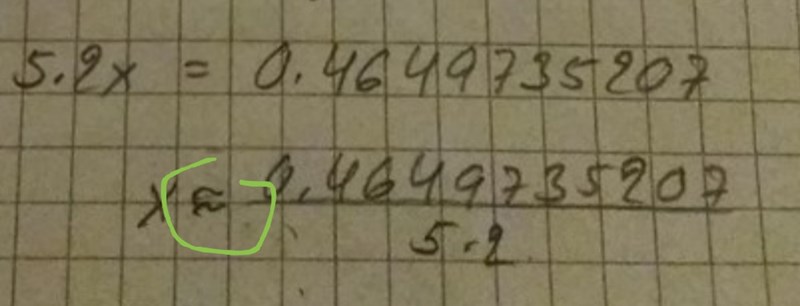 5.2x = 0.4649735207
x ≈ 0.4649735207
5.2